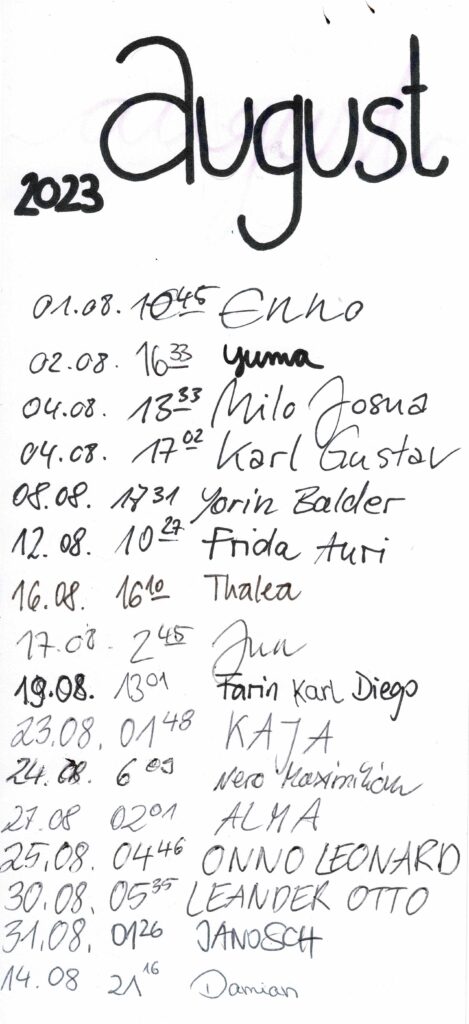 august
2023
01.08. 10 45 Enno
02.08. 16 33 Yuma
04.08. 13 33 Milo Josua
04.08. 17 02 Karl Gustav
08.08. 17 31 Yorin Balder
12.08. 10 27 Frida Auri
16.08. 16 10 Thalea
17.08 2 45
19.08. 13 01 Farin Karl Diego
23.08. 01 48 KAJA
24.08. 6 09 Nero Maximilian
27.08 02 01 ALMA
25.08. 04 46 ONNO LEONARD
30.08. 05 35 LEANDER OTTO
31.08. 01 26 JANOSCH
14.08 21 16 Damian